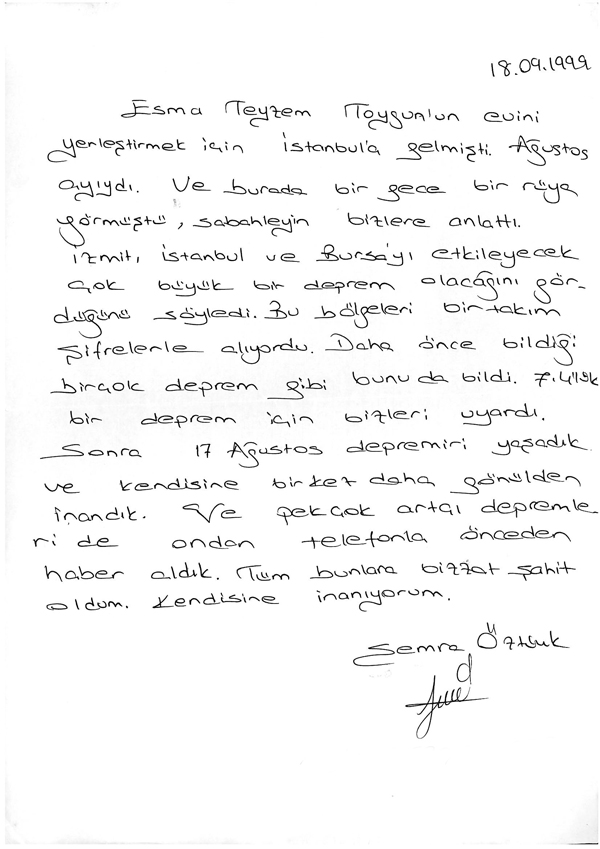 18.09.1999
Esma Teyzem Toygun'un evini
yerleştirmek için İstanbul'a gelmişti. Ağustos
ayıydı. Ve burada bir gece bir rüya
görmüştü, sabahleyin bizlere anlattı.
İzmit, İstanbul ve Bursa'yı etkileyecek
çok büyük bir deprem olacağını gör-
düğünü söyledi. Bu bölgeleri birtakım
şifrelerle alıyordu. Daha önce bildiği
birçok deprem gibi bunu da bildi. 7.4'lük
bir deprem için bizleri uyardı.
Sonra 17 Ağustos depremiri yaşadık
ve kendisine birkez daha gönülden
inandık. Ve pekçok artçı depremle
ri de ondan telefonla önceden
haber aldık. Tüm bunlara bizzat şahit
oldum. Kendisine inanıyorum.
Semra Öztürk